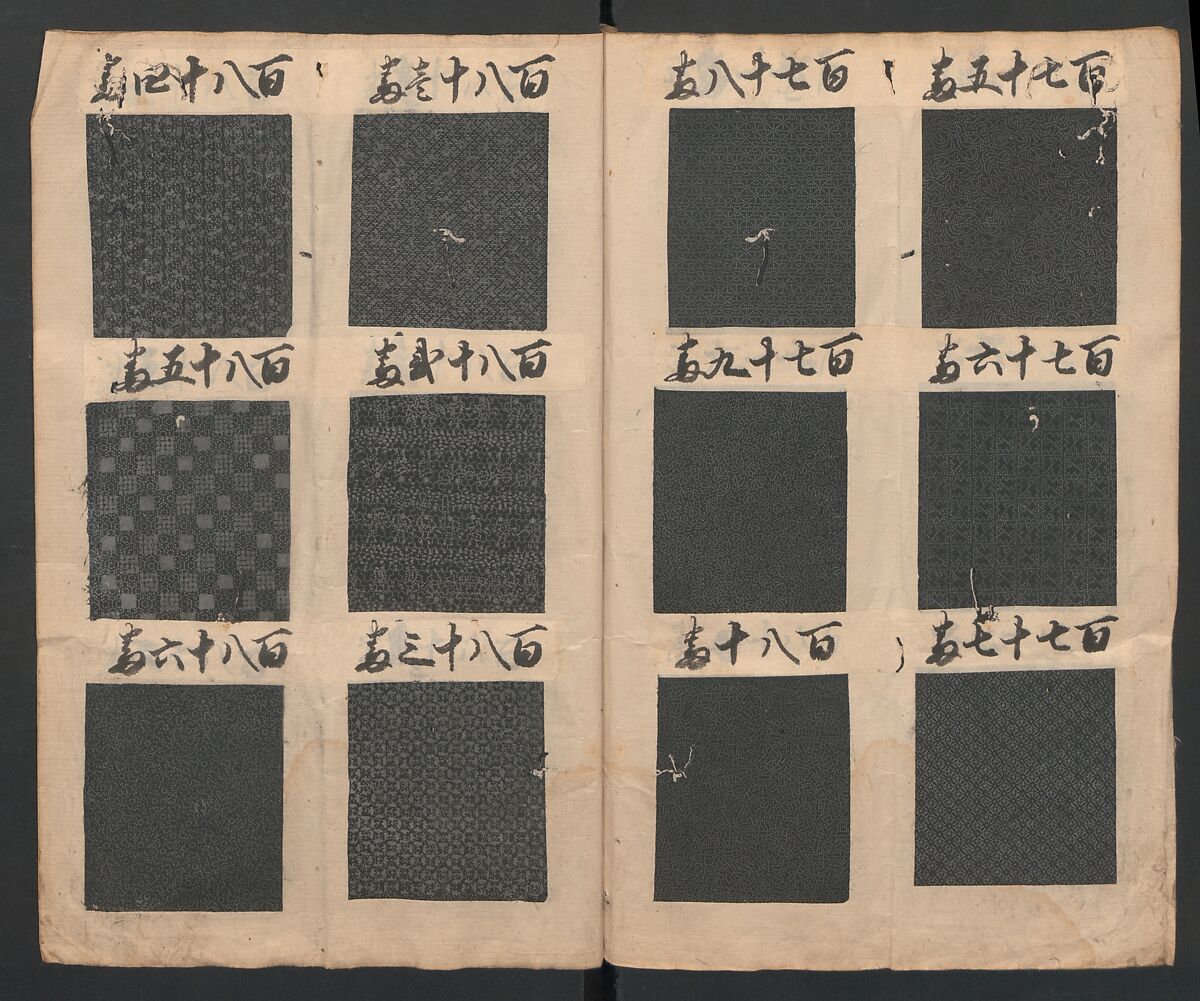 百七十五番
百七十六番
百七十七番
百七十八番
百七十九番
百八十番
百八十壱番
百八十弐番
百八十三番
百八十四番
百八十五番
百八十六番